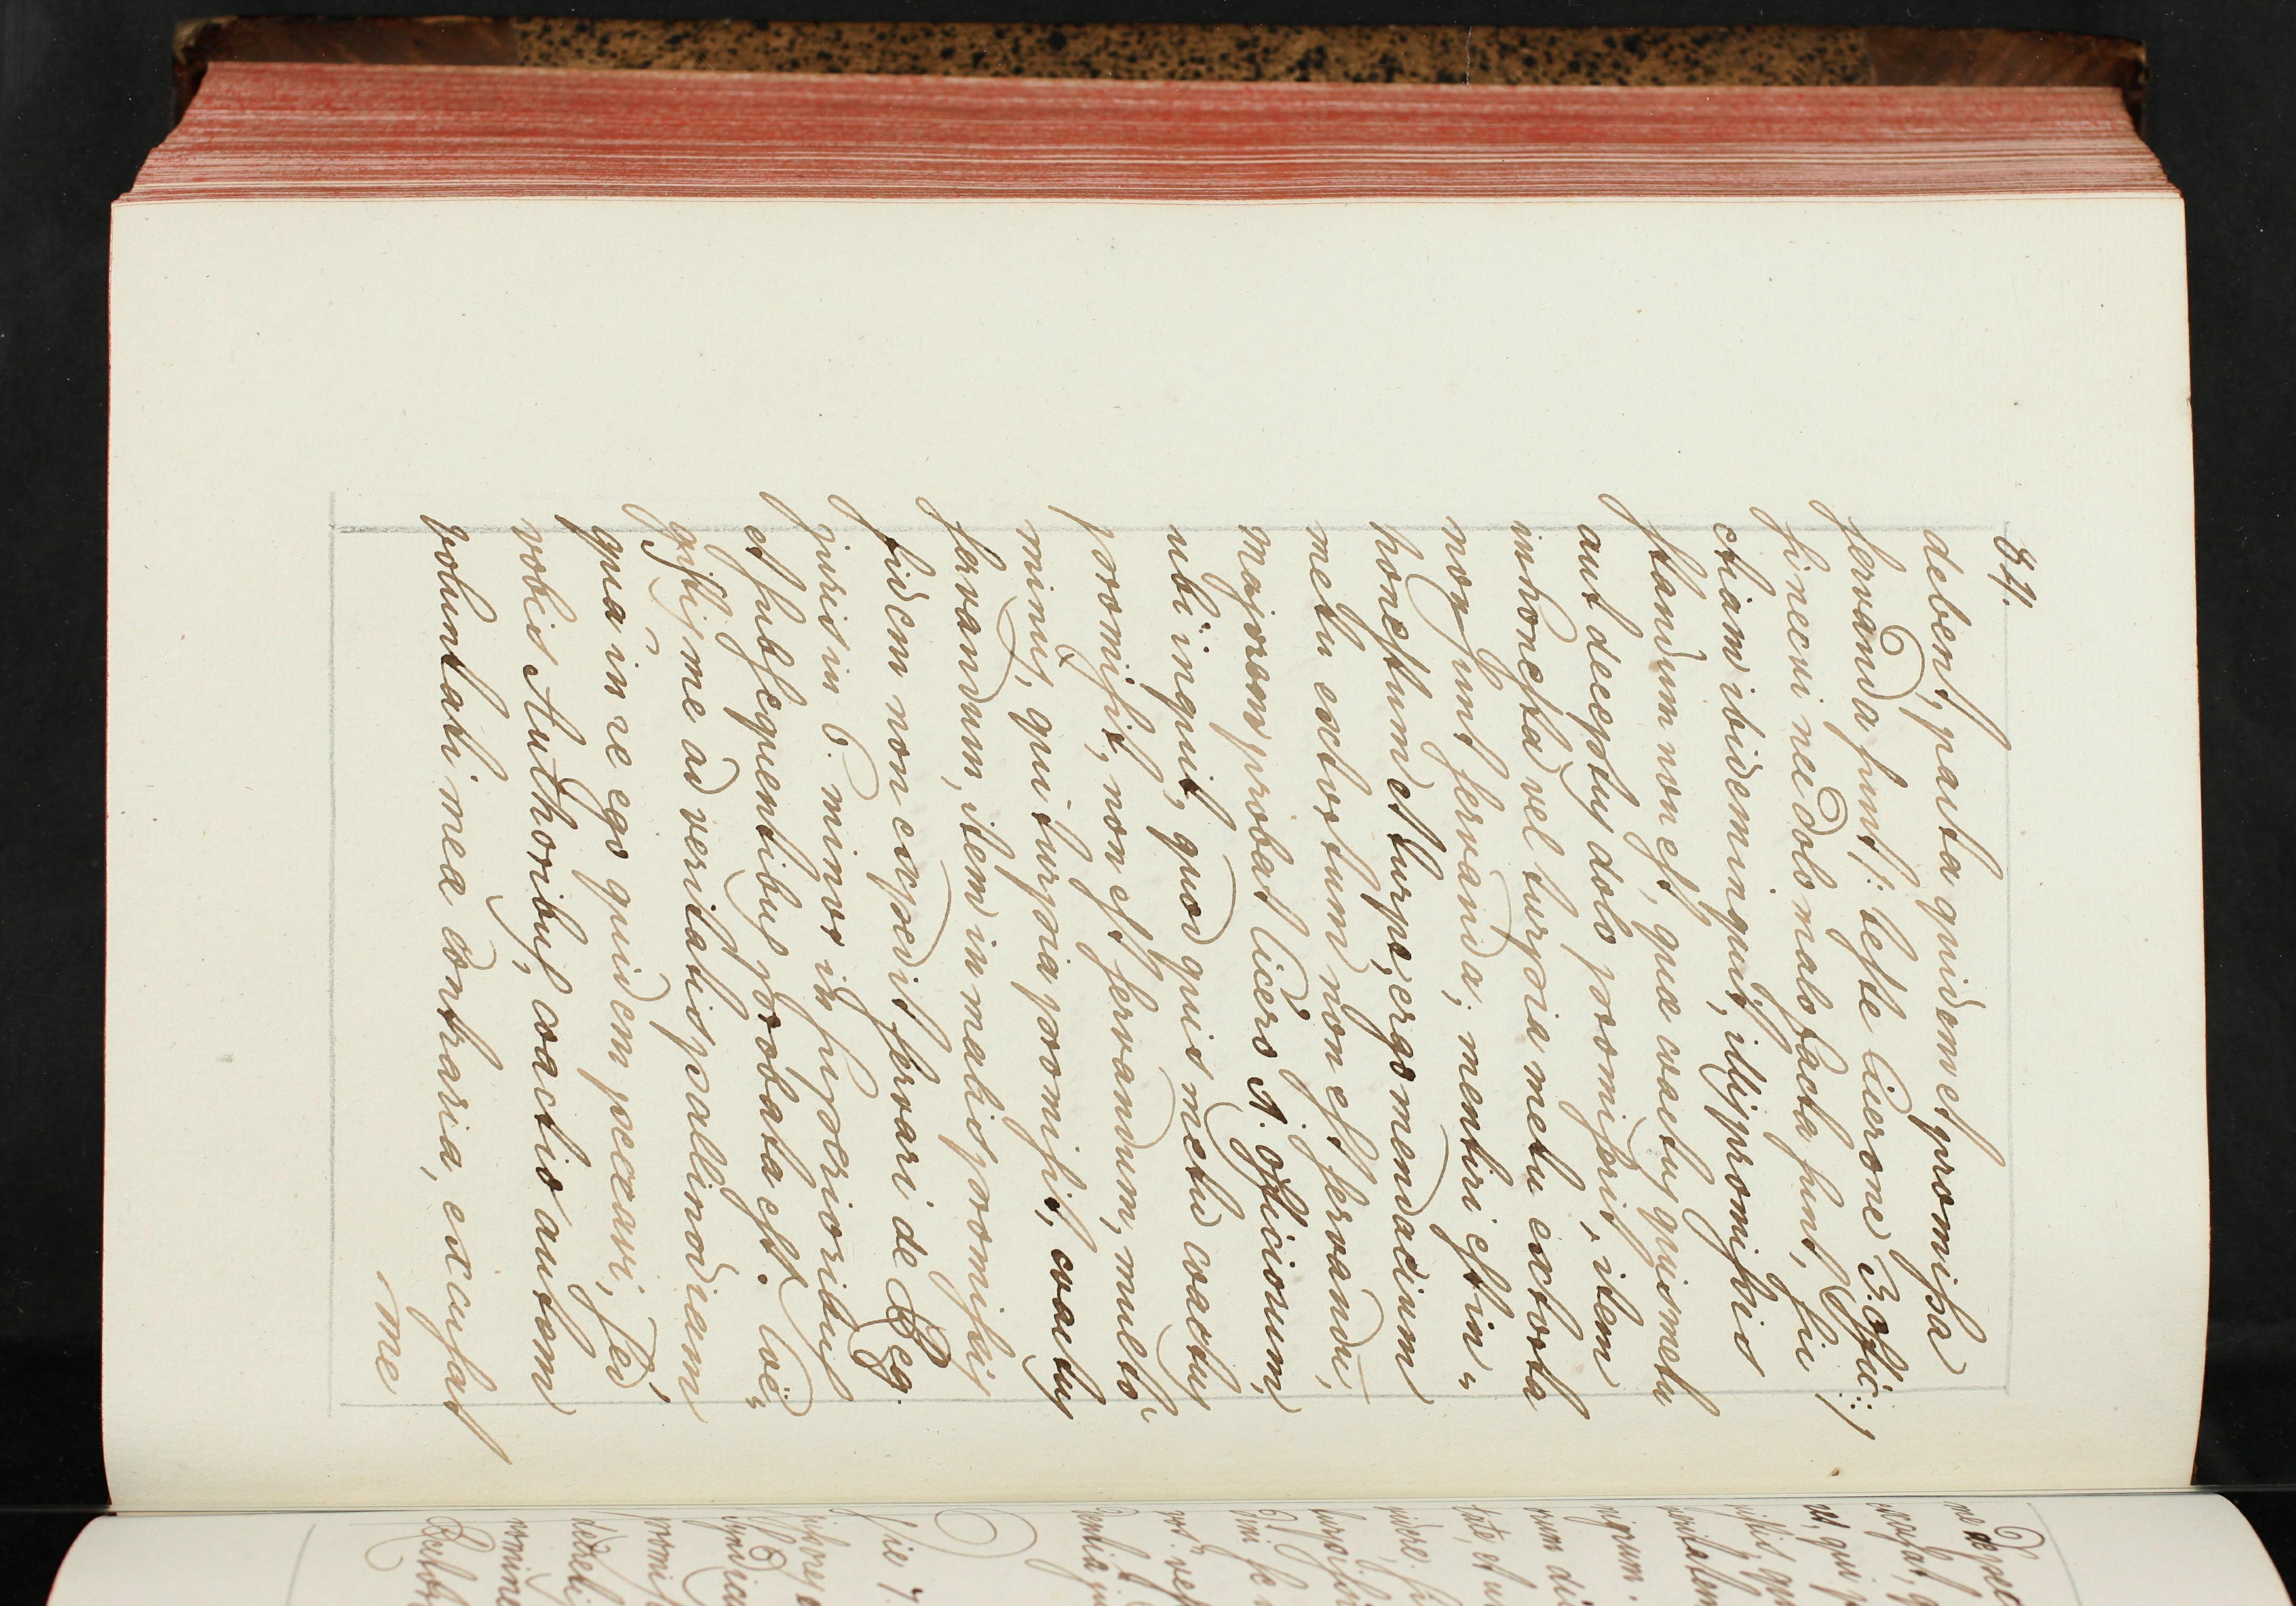 84.
debent, pacta quidem et promissa
servanda sunt /: teste Cicerone 3. Offic: :/
si nec vi nec dolo malo facta sunt, sic
etiam ibidem inquit, illis promissis
standum non est, quæ coactus quis metu
aut deceptus dolo promiserit, item
inhonesta vel turpia metu extorta
non sunt servanda; mentiri est in„
honestum et turpe, ergo mendacium
metu extortum non est servandū,
majorem probat Cicero 1. officiorum,
ubi inquit, quod quis metu coactus
promisit, non est servandum, multo
minus, qui turpia promisit, coactus
servandum, item in malis promissis
fidem non expedit servari de Reg.
juris in 6. minor in superioribus
et subsequentibus probata est. Coë„
gistis me ad veritatis pallinodiam
qua in re ego quidem peccavi, sed
vobis Authoribus, coactio autem
voluntati meæ contraria, excusat
me